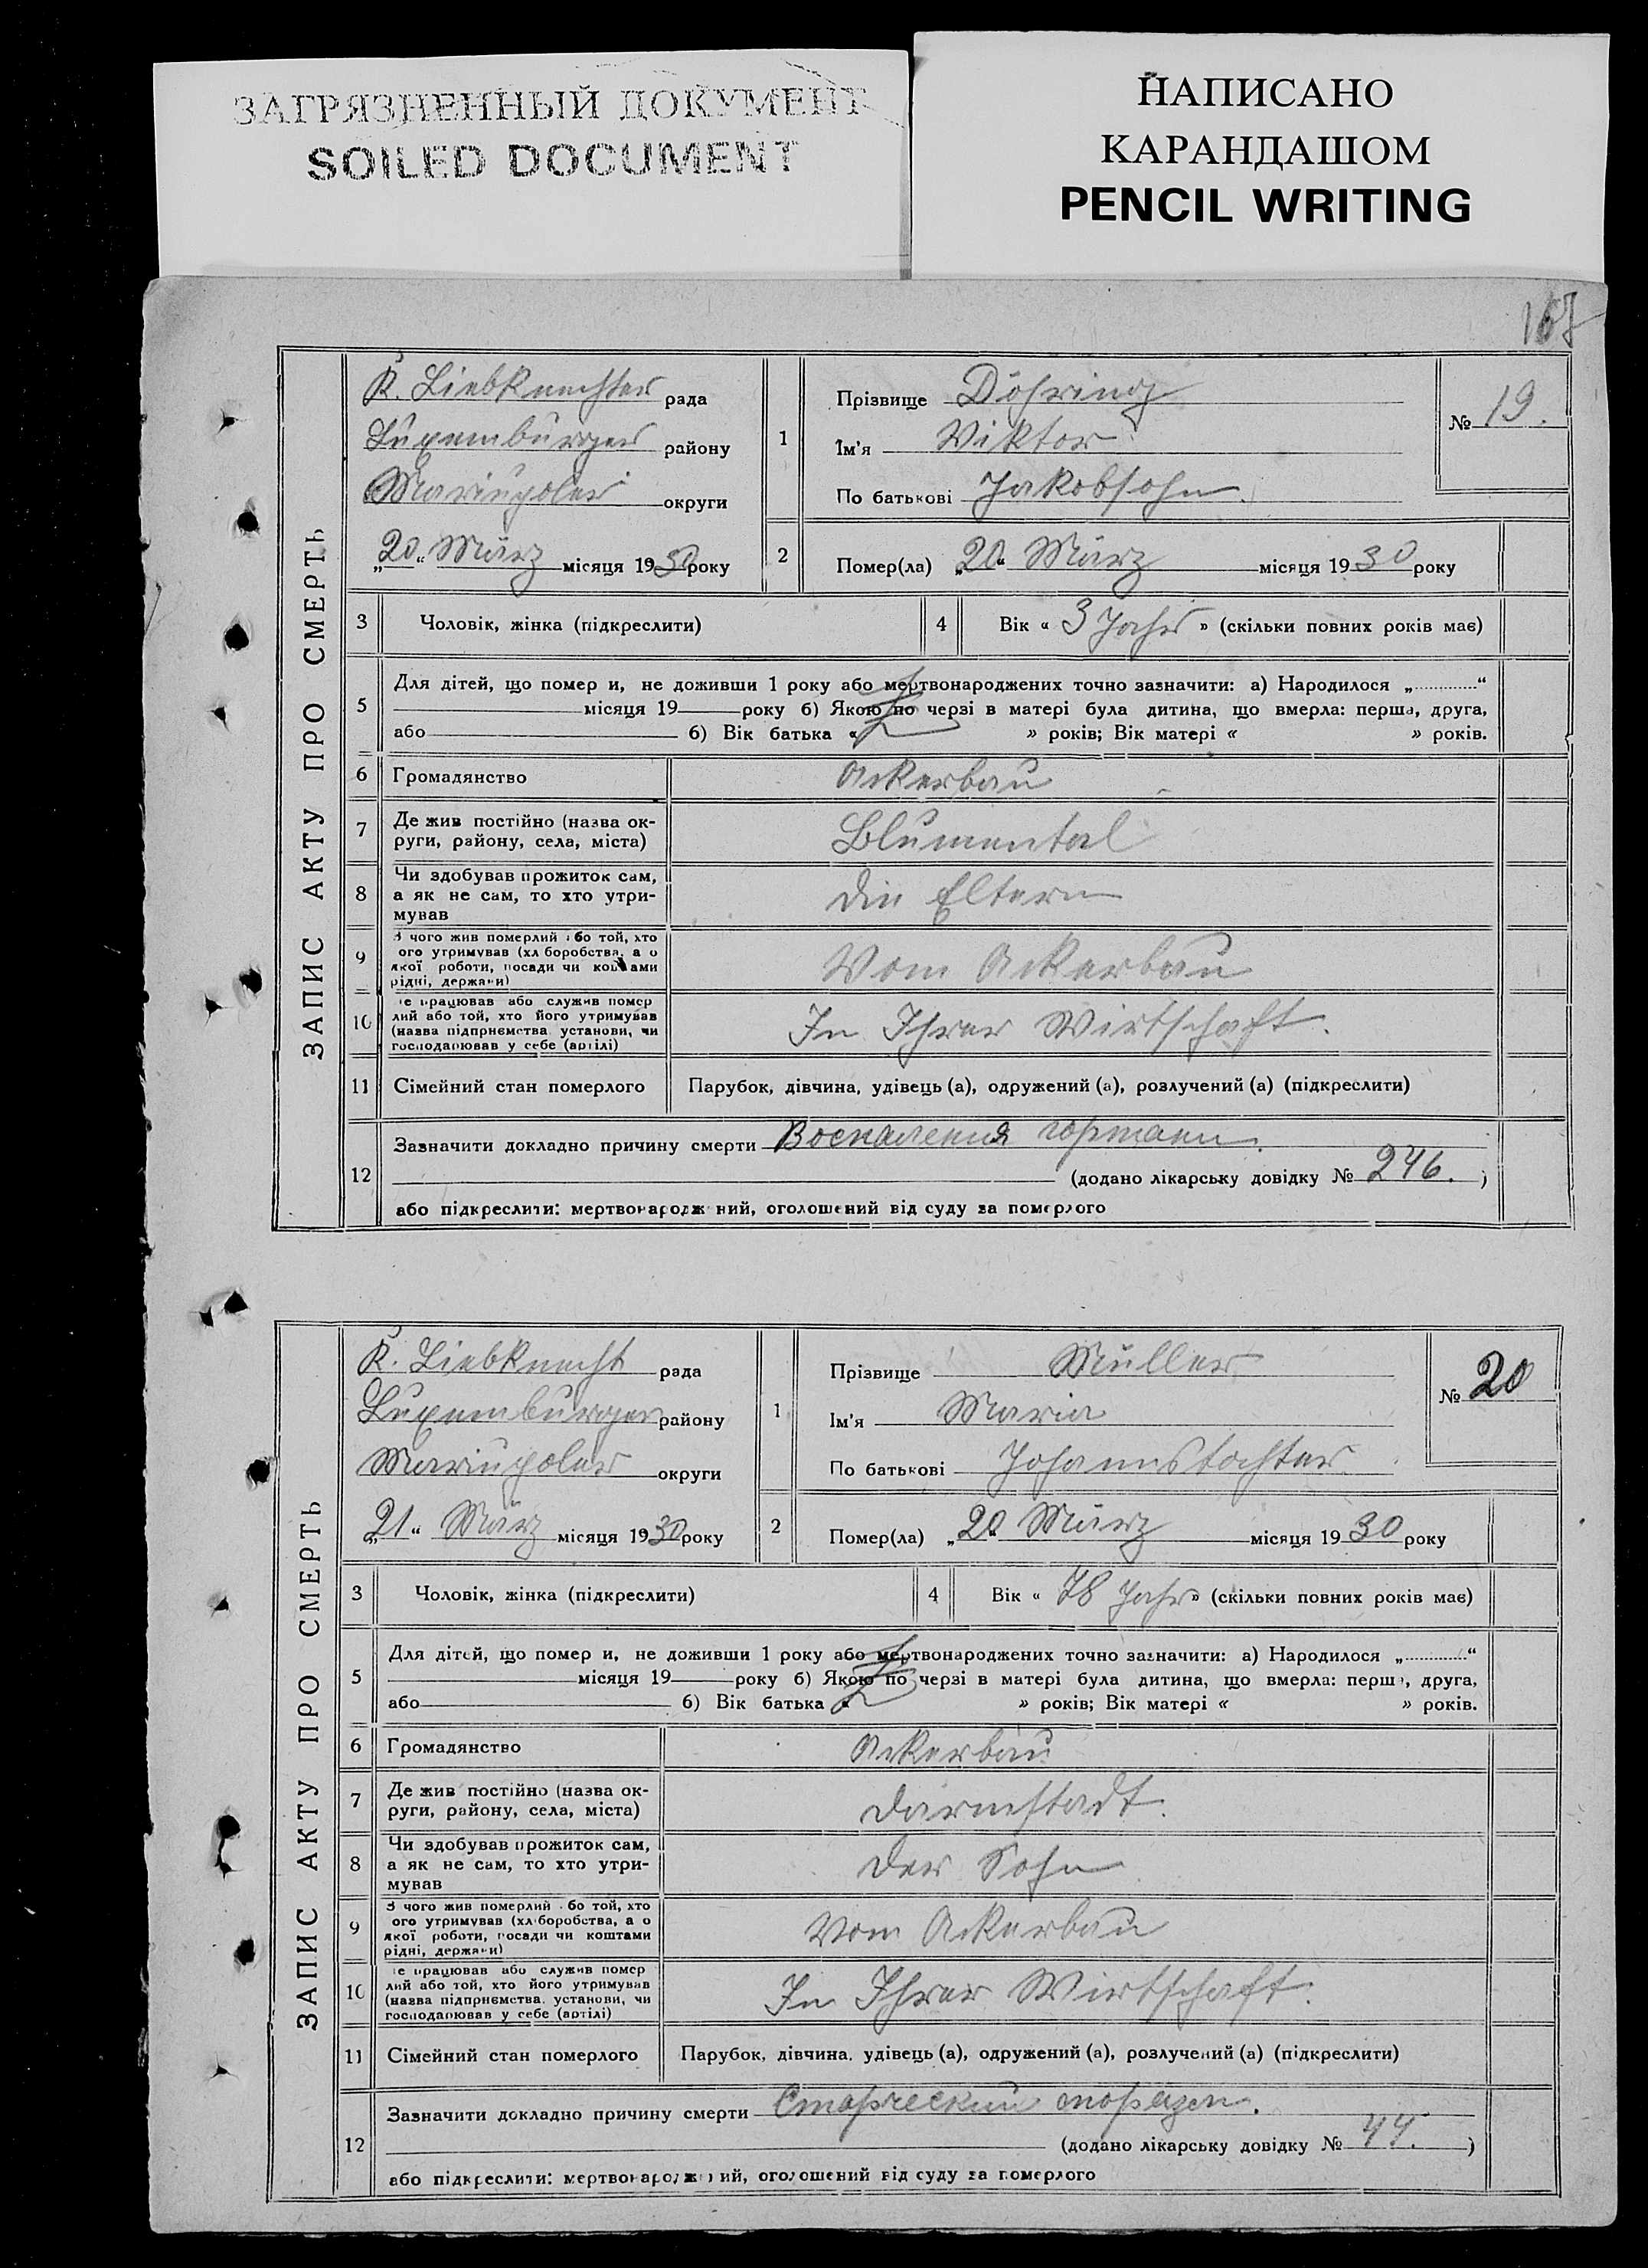 ЗАГРЯЗНЕННЫЙ ДОКУМЕНТ
SOILED DOCUMENT
НАПИСАНО
КАРАНДАШОМ
PENCIL WRITING
167
ЗАПИС АКТУ ПРО СМЕРТЬ
K. Liebknechter рада
Luxemburger району
Mariupoler округи
„20“ März місяця 1930 року
1
Прізвище Döhring
Ім'я Viktor
По батькові Jakobsohn.
№ 19.
2 Помер(ла) „20“ März місяця 1930 року
3 Чоловік, жінка (підкреслити)
4 Вік « 3 Jahr » (скільки повних років має)
5 Для дітей, що помер и, не доживши 1 року або мертвонароджених точно зазначити: а) Народилося „ “
місяця 19 року б) Якою по черзі в матері була дитина, що вмерла: перша, друга,
або б) Вік батька « » років; Вік матері « » років.
6 Громадянство Ackerbau
7 Де жив постійно (назва ок-
руги, району, села, міста) Blumental
8 Чи здобував прожиток сам,
а як не сам, то хто утри-
мував die Eltern
9 З чого жив померлий або той, хто
ого утримував (хл боробства, а о
якої роботи, посади чи коштами
рідні, держави) Vom Ackerbau
10 е працював або служив помер
лий або той, хто його утримував
(назва підприємства установи, чи
господарював у себе (артілі) In Ihrer Wirtschaft.
11 Сімейний стан померлого Парубок, дівчина, удівець (а), одружений (а), розлучений (а) (підкреслити)
12 Зазначити докладно причину смерти Воспаления гортани.
(додано лікарську довідку № 246. )
або підкреслити: мертвонародж ний, оголошений від суду за померлого
ЗАПИС АКТУ ПРО СМЕРТЬ
K. Liebknecht рада
Luxemburger району
Mariupoler округи
„21“ März місяця 1930 року
1
Прізвище Müller
Ім'я Maria
По батькові Johannstochter.
№ 20
2 Помер(ла) „20“ März місяця 1930 року
3 Чоловік, жінка (підкреслити)
4 Вік « 78 Jahr » (скільки повних років має)
5 Для дітей, що помер и, не доживши 1 року або мертвонароджених точно зазначити: а) Народилося „ “
місяця 19 року б) Якою по черзі в матері була дитина, що вмерла: перша, друга,
або б) Вік батька « » років; Вік матері « » років.
6 Громадянство Ackerbau
7 Де жив постійно (назва ок-
руги, району, села, міста) Darmstadt.
8 Чи здобував прожиток сам,
а як не сам, то хто утри-
мував der Sohn
9 З чого жив померлий або той, хто
ого утримував (хл боробства, а о
якої роботи, посади чи коштами
рідні, держави) Vom Ackerbau
10 е працював або служив помер
лий або той, хто його утримував
(назва підприємства. установи, чи
господарював у себе (артілі) In Ihrer Wirtschaft.
11 Сімейний стан померлого Парубок, дівчина, удівець (а), одружений (а), розлучений (а) (підкреслити)
12 Зазначити докладно причину смерти Старческий
(додано лікарську довідку № 44. )
або підкреслити: мертвонародж ий, оголошений від суду за померлого